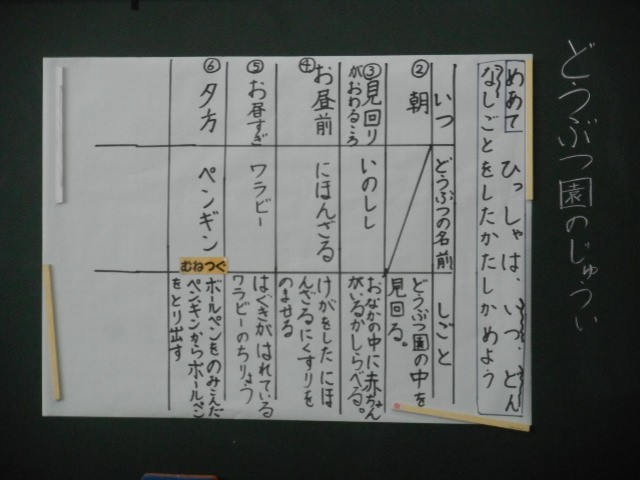 どうぶつ園のじゅうい
めあて ひっしゃは、いつ、どん
なしごとをしたかたしかめよう
いつ
どうぶつの名前
しごと
②朝
どうぶつ園の中を
見回る。
③見回り
がおわるころ
いのしし
おなかの中に赤ちゃん
がいるかしらべる。
④お昼前
にほんざる
けがをしたにほ
んざるにくすりを
のませる
⑤お昼すぎ
ワラビー
はぐきがはれている
ワラビーのちりょう
⑥夕方
ペンギン
むねつぐ
ボールペンをのみこんだ
ペンギンからボールペン
をとり出す